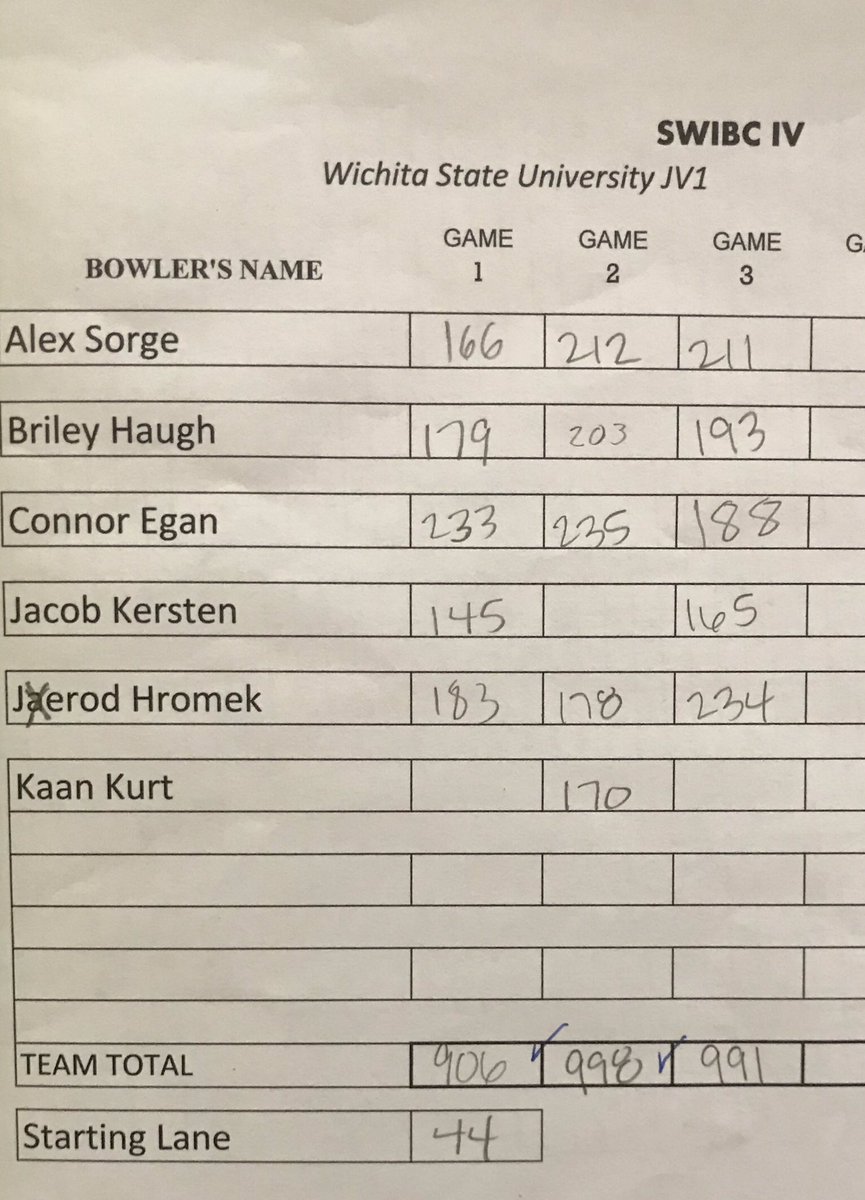 SWIBC IV
Wichita State University JV1
BOWLER'S NAME GAME 1 GAME 2 GAME 3 G
Alex Sorge 166 212 211
Briley Haugh 179 203 193
Connor Egan 233 235 188
Jacob Kersten 145 165
Jaerod Hromek 183 178 234
Kaan Kurt 170
TEAM TOTAL 906 998 991
Starting Lane 44